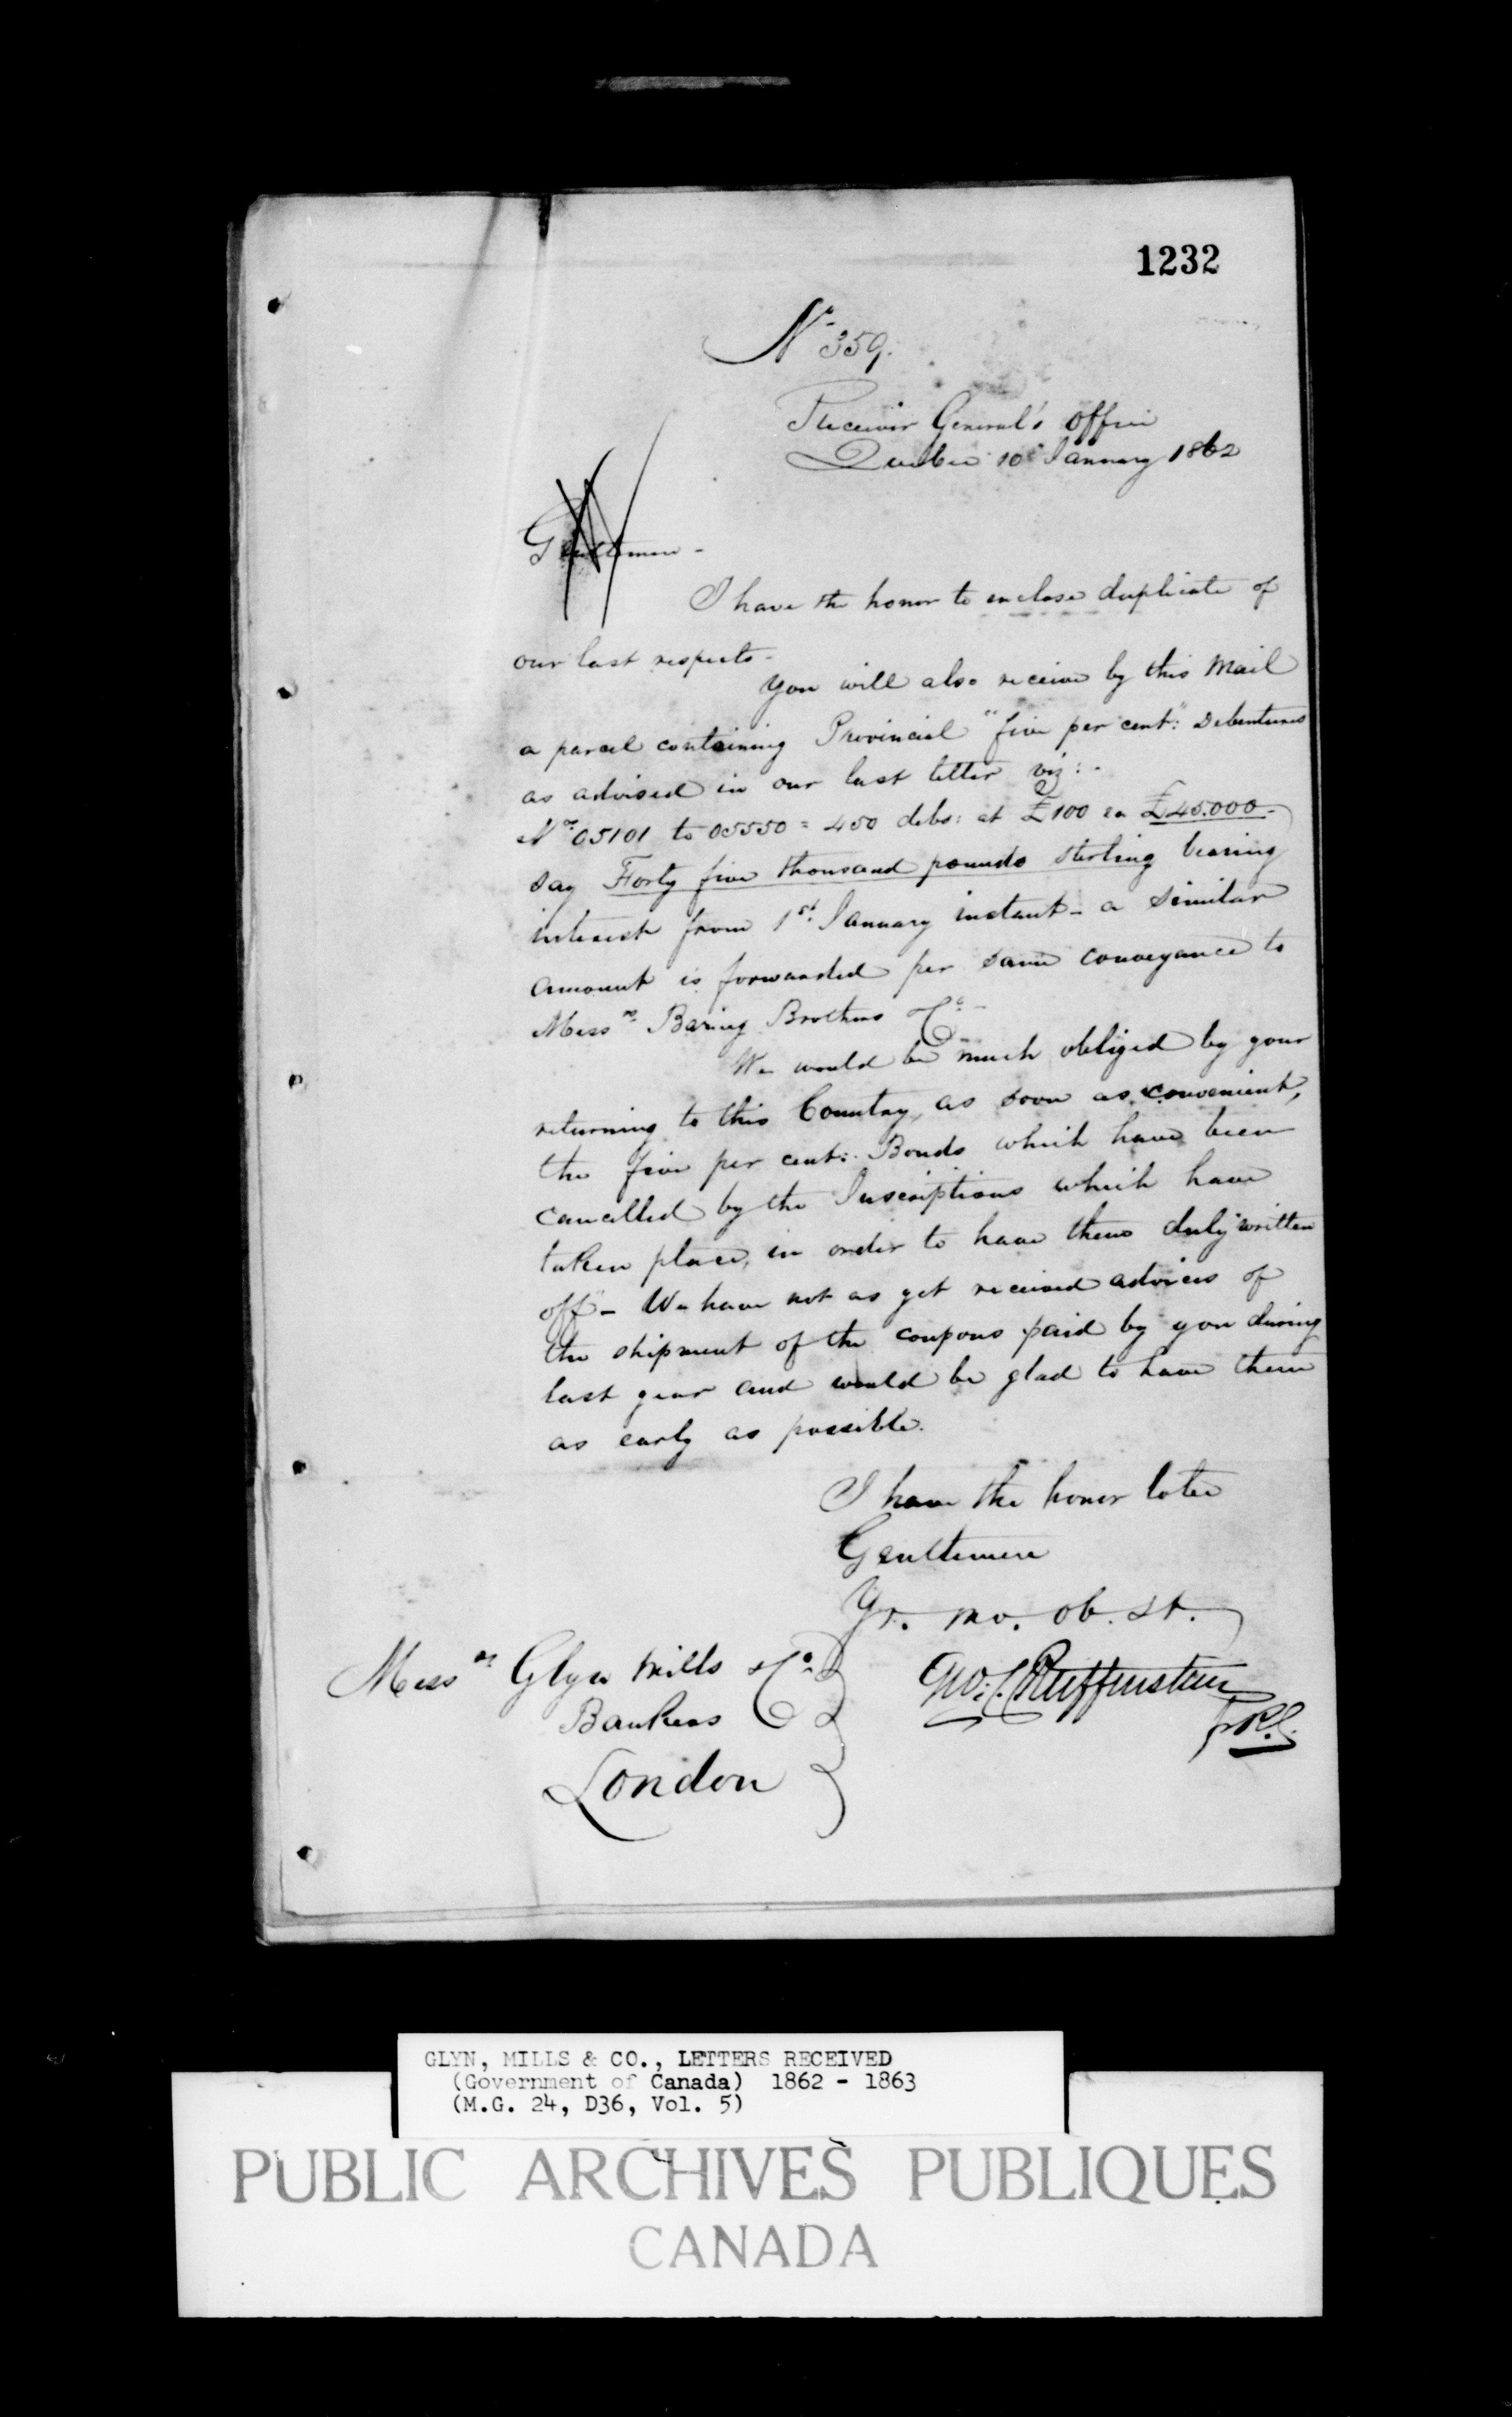 1232
No 359.
Receiver General's Office
Quebec 10th January 1862
Gentlemen -
I have the honor to enclose duplicate of
our last respects -
You will also receive by this Mail
a parcel containing Provincial "five per cent:" Debentures
as advised in our last letter viz: -
Nos 05101 to 05550 = 450 debs: at £100 ea £45.000 -
Say Forty five thousand pounds sterling bearing
interest from 1st January instant - a similar
amount is forwarded per same conveyance to
Messrs Baring Brothers & Co -
We would be much obliged by your
returning to this Country, as soon as convenient,
the five per cent: Bonds which have been
cancelled by the Inscriptions which have
taken place, in order to have them duly "written
off" - We have not as yet received advices of
the shipment of the coupons paid by you during
last year and would be glad to have them
as early as possible.
I have the honor to be
Gentlemen
Yr. mo. ob. st.
Messrs Glyn Mills & Co
Bankers
London
Geo. C. Reiffenstein
for R.G.
GLYN, MILLS & CO., LETTERS RECEIVED
(Government of Canada) 1862 - 1863
(M.G. 24, D36, Vol. 5)
PUBLIC ARCHIVES PUBLIQUES
CANADA